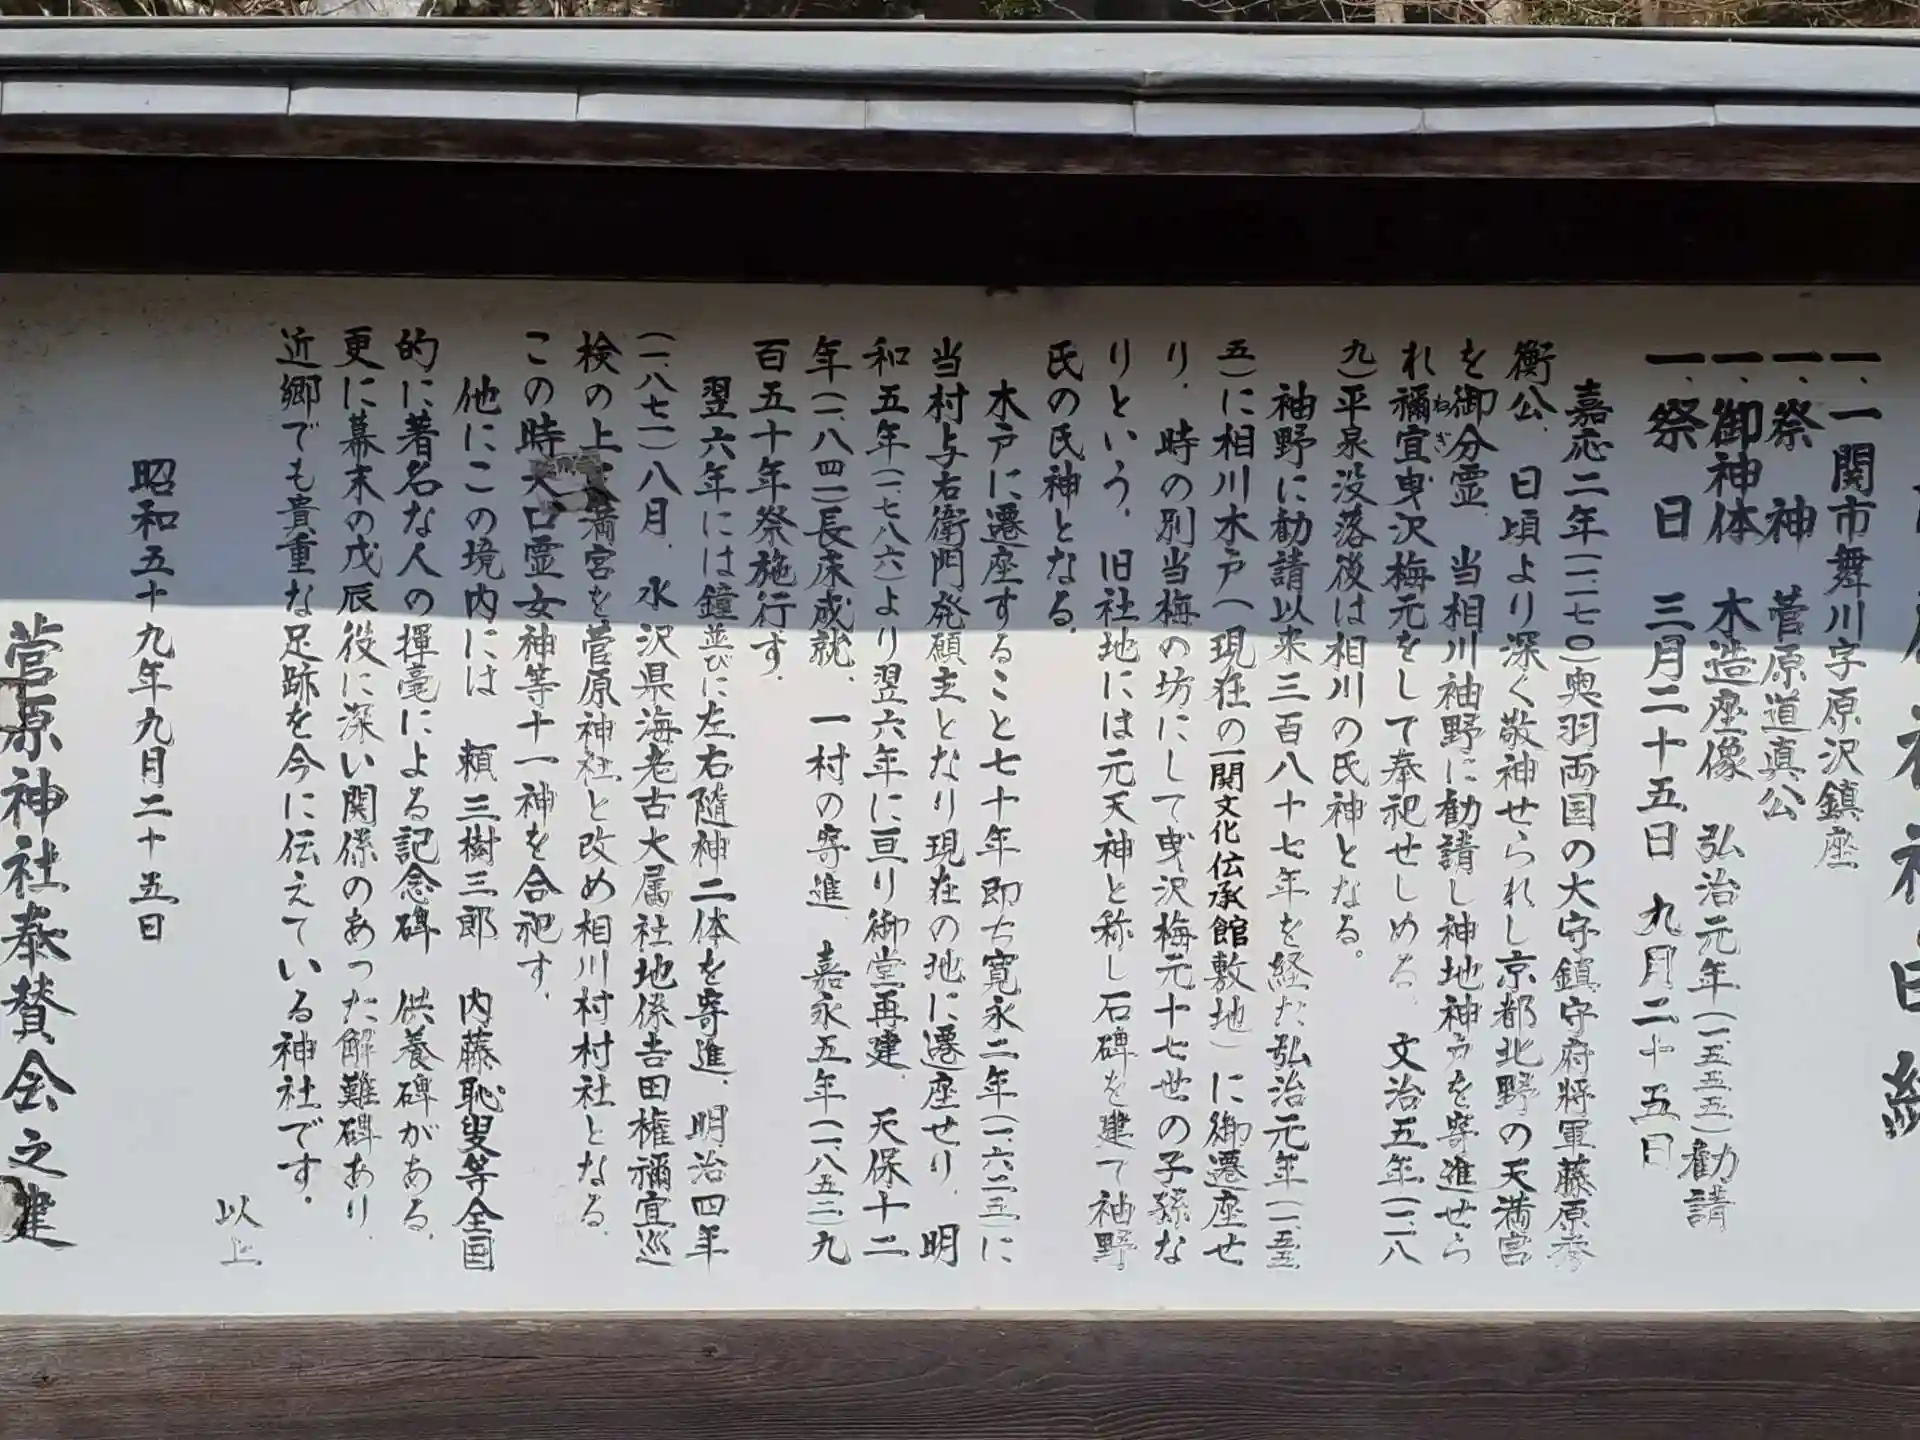 菅原神社由緒
一、一関市舞川字原沢鎮座
一、祭　神　菅原道真公
一、御神体　木造座像　弘治元年（一五五五）勧請
一、祭　日　三月二十五日　九月二十五日
嘉応二年（一一七〇）奥羽両国の大守鎮守府将軍藤原秀
衡公、日頃より深く敬神せられし京都北野の天満宮
を御分霊、当相川袖野に勧請し神地神戸を寄進せら
れ禰宜曳沢梅元をして奉祀せしめる、文治五年（一一八
九）平泉没落後は相川の氏神となる。
袖野に勧請以来三百八十七年を経た弘治元年（一五五
五）に相川木戸（現在の一関文化伝承館敷地）に御遷座せ
り、時の別当梅の坊にして曳沢梅元十七世の子孫な
りという、旧社地には元天神と称し石碑を建て袖野
氏の氏神となる、
木戸に遷座すること七十年即ち寛永二年（一六二五）に
当村与右衛門発願主となり現在の地に遷座せり、明
和五年（一七八六）より翌六年に亘り御堂再建、天保十二
年（一八四一）長床成就、一村の寄進、嘉永五年（一八五二）九
百五十年祭施行す、
翌六年には鐘並びに左右隨神二体を寄進、明治四年
（一八七一）八月、水沢県海老古大属社地係吉田権禰宜巡
検の上、天満宮を菅原神社と改め相川村村社となる、
この時大口霊女神等十一神を合祀す、
他にこの境内には　頼三樹三郎　内藤恥叟等全国
的に著名な人の揮毫による記念碑　供養碑がある、
更に幕末の戊辰役に深い関係のあった解難碑あり、
近郷でも貴重な足跡を今に伝えている神社です。
以上
昭和五十九年九月二十五日
菅原神社奉賛会之建